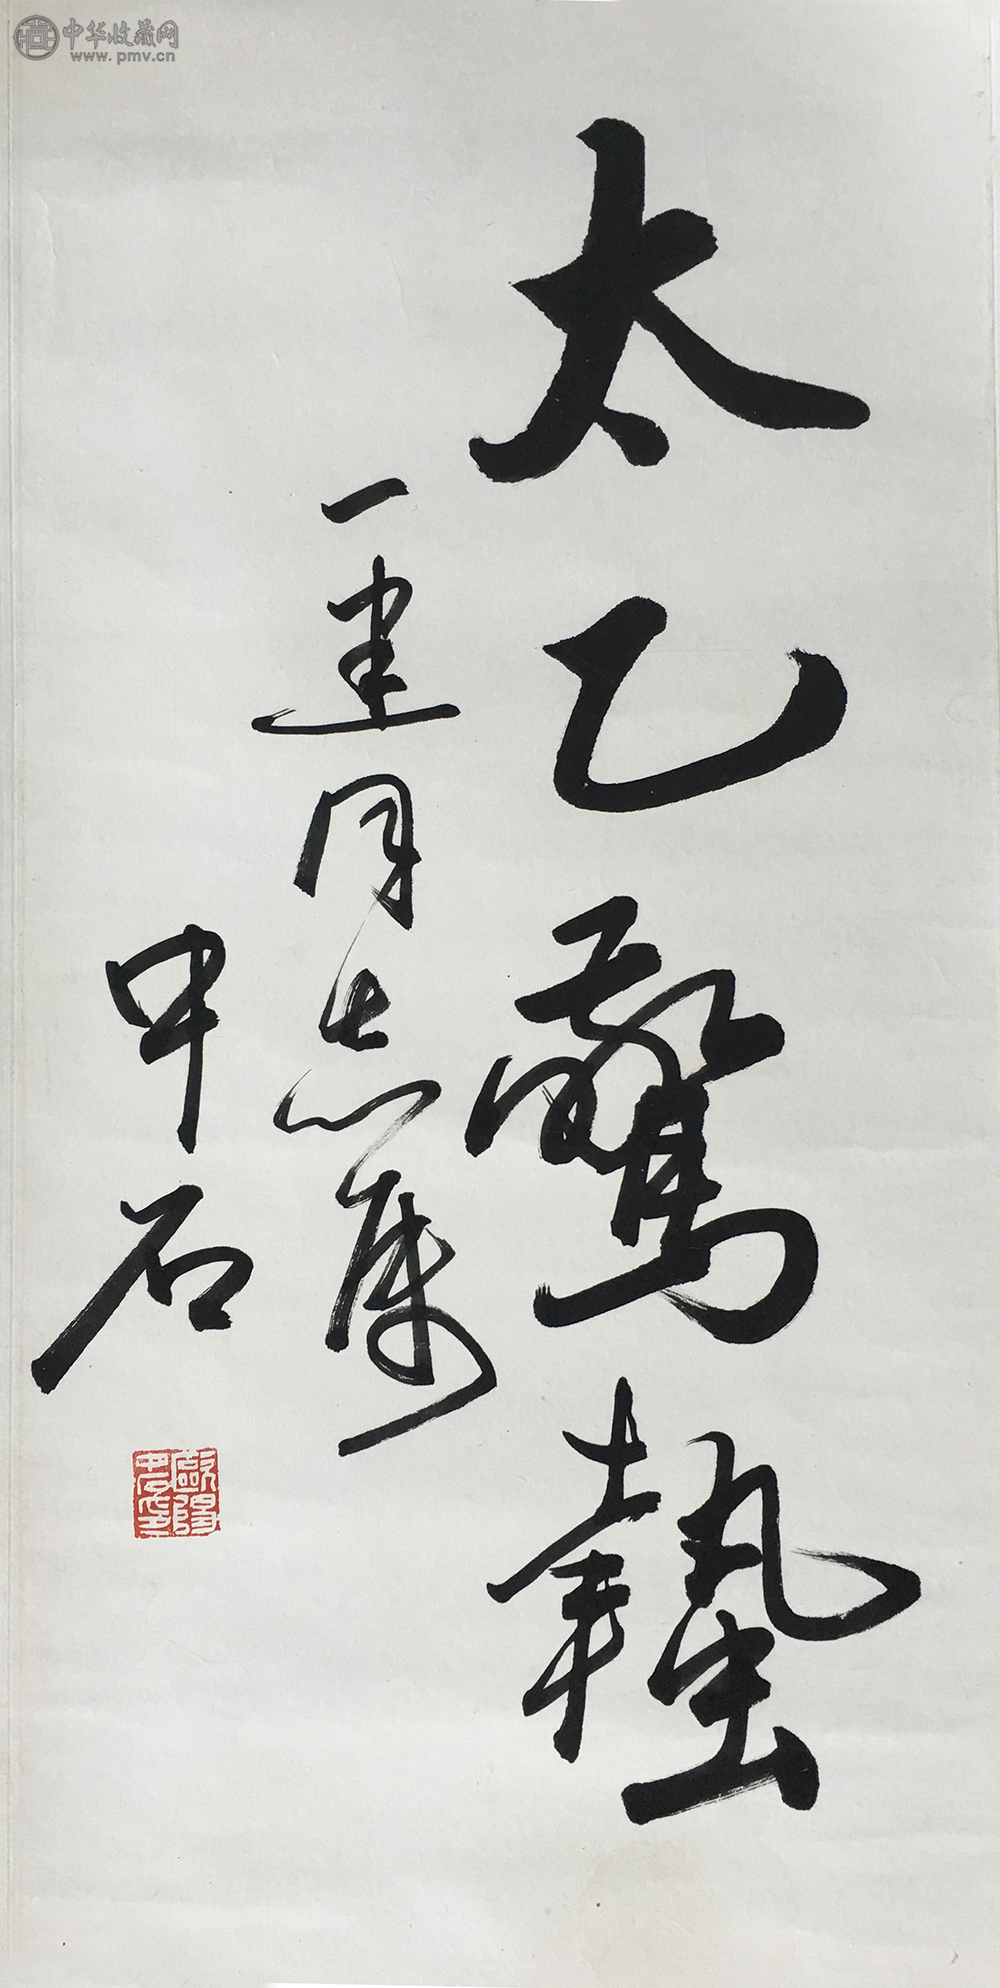 中华收藏网
www.pmv.cn
太乙驚蟄
一建同志属
中石
歐陽中石之鉨